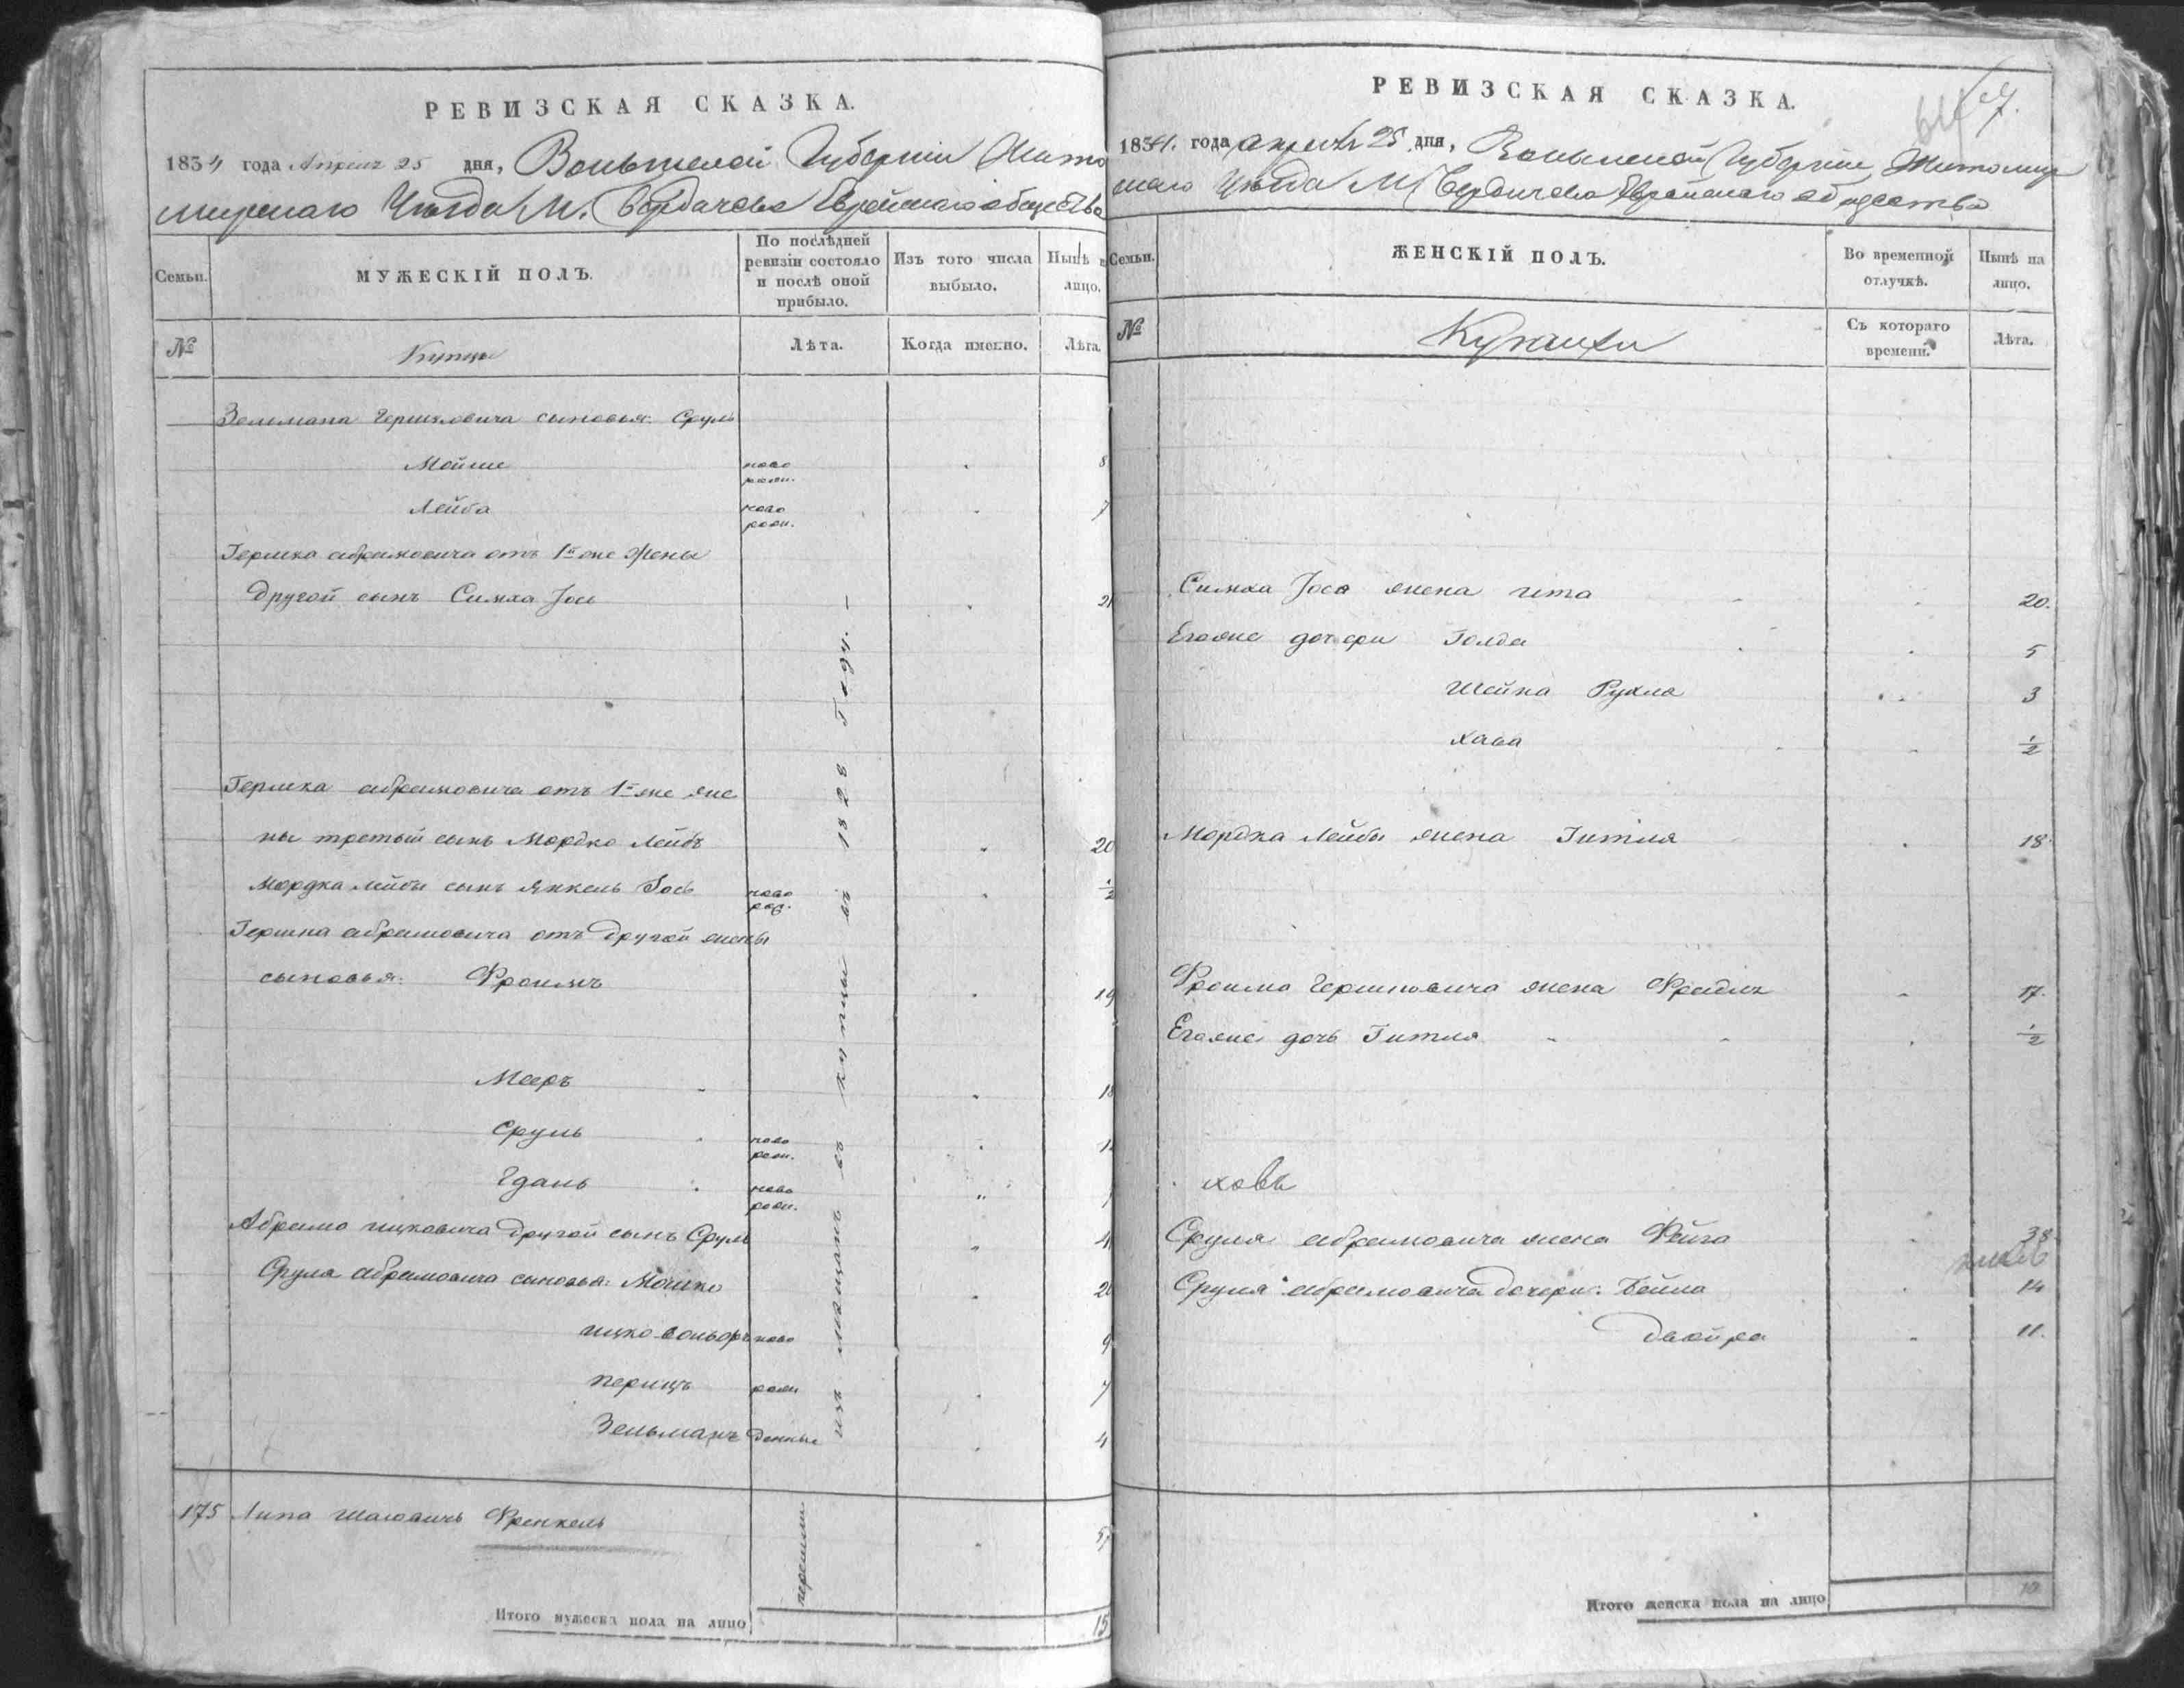 РЕВИЗСКАЯ СКАЗКА.
1834 года Апреля 25 дня, Волынской Губерніи Жито
мирскаго Уѣзда М. Бердичева Еврейскаго общества
Семьи.
МУЖЕСКІЙ ПОЛЪ.
По послѣдней ревизіи состояло и послѣ оной прибыло.
Изъ того числа выбыло.
Нынѣ н лицо.
№
Купцы
Лѣта.
Когда именно.
Лѣта.
Зельмана Гершковича сыновья: Сруль
Мойше ново рожн. 8
Лейба ново рожн. 7
Гершка абрамовича отъ 1й же жены
другой сынъ Симха Іось 21
Гершка абрамовича отъ 1й же же
ны третый сынъ Мордко Лейбъ 20
Мордка лейбы сынъ Янкель Іось ново рож. ½
Гершка абрамовича отъ другой жены
сыновья: Фроимъ 19
Мееръ 18
Сруль ново рожн. 1
Гдаль ново рожн.
Абрама ицковича другой сынъ Сруль 4
Сруля абрамовича сыновья: Мошко 20
ицко вольфъ ново 9
перицъ рожн 7
Зельманъ денные 4
изъ мещанъ въ купцы въ 1828 Году. —
175 Липа Шаювичъ Френкель 5
перешли
Итого мужеска пола на лицо 15
РЕВИЗСКАЯ СКАЗКА.
1834. года апреля 25 дня, Волынской Губерніи Житомир
скаго Уѣзда М Бердичева Еврейскаго общества
Семьи.
ЖЕНСКІЙ ПОЛЪ.
Во временной отлучкѣ.
Нынѣ на лицо.
№
Купчихи
Съ котораго времени.
Лѣта.
Симха Іося жена ита 20.
Егоже дочери Голда 5
Шейна Рухля 3
хава ½
Мордка Лейбы жена Гитля 18
Фроима Гершковича жена Фрейдля 17.
Егоже дочь Гитля ½
Сруля абрамовича жена Фейга 38
Сруля абрамовича дочери: Бейла 14
Двойра 11.
Итого женска пола на лицо 10